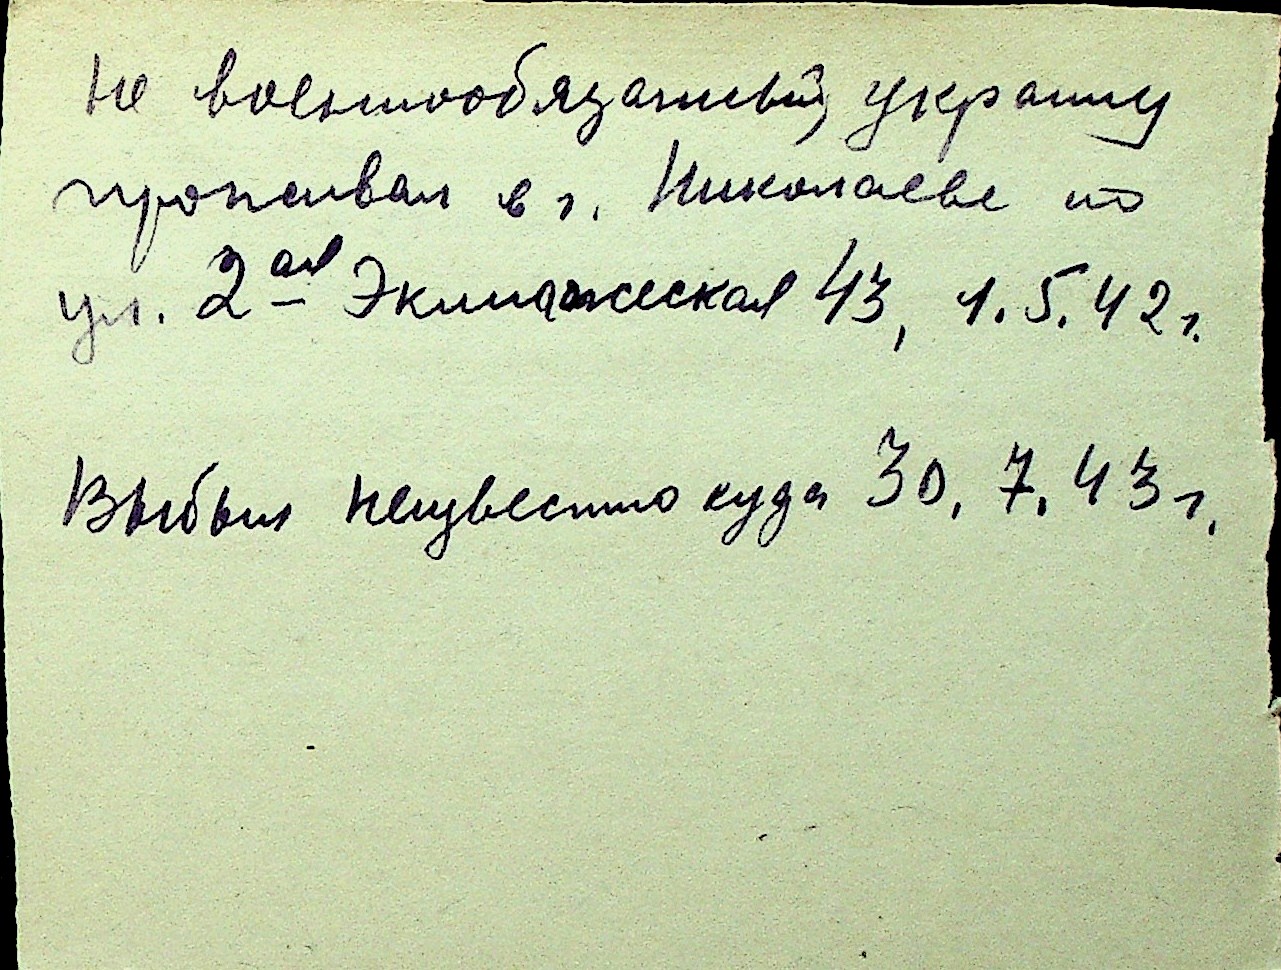 Не военнообязанный, украинец
проживал в г. Николаеве по
ул. 2ая Экипажеская 43, 1.5.42 г.
Выбыл неизвестно куда 30.7.43 г.